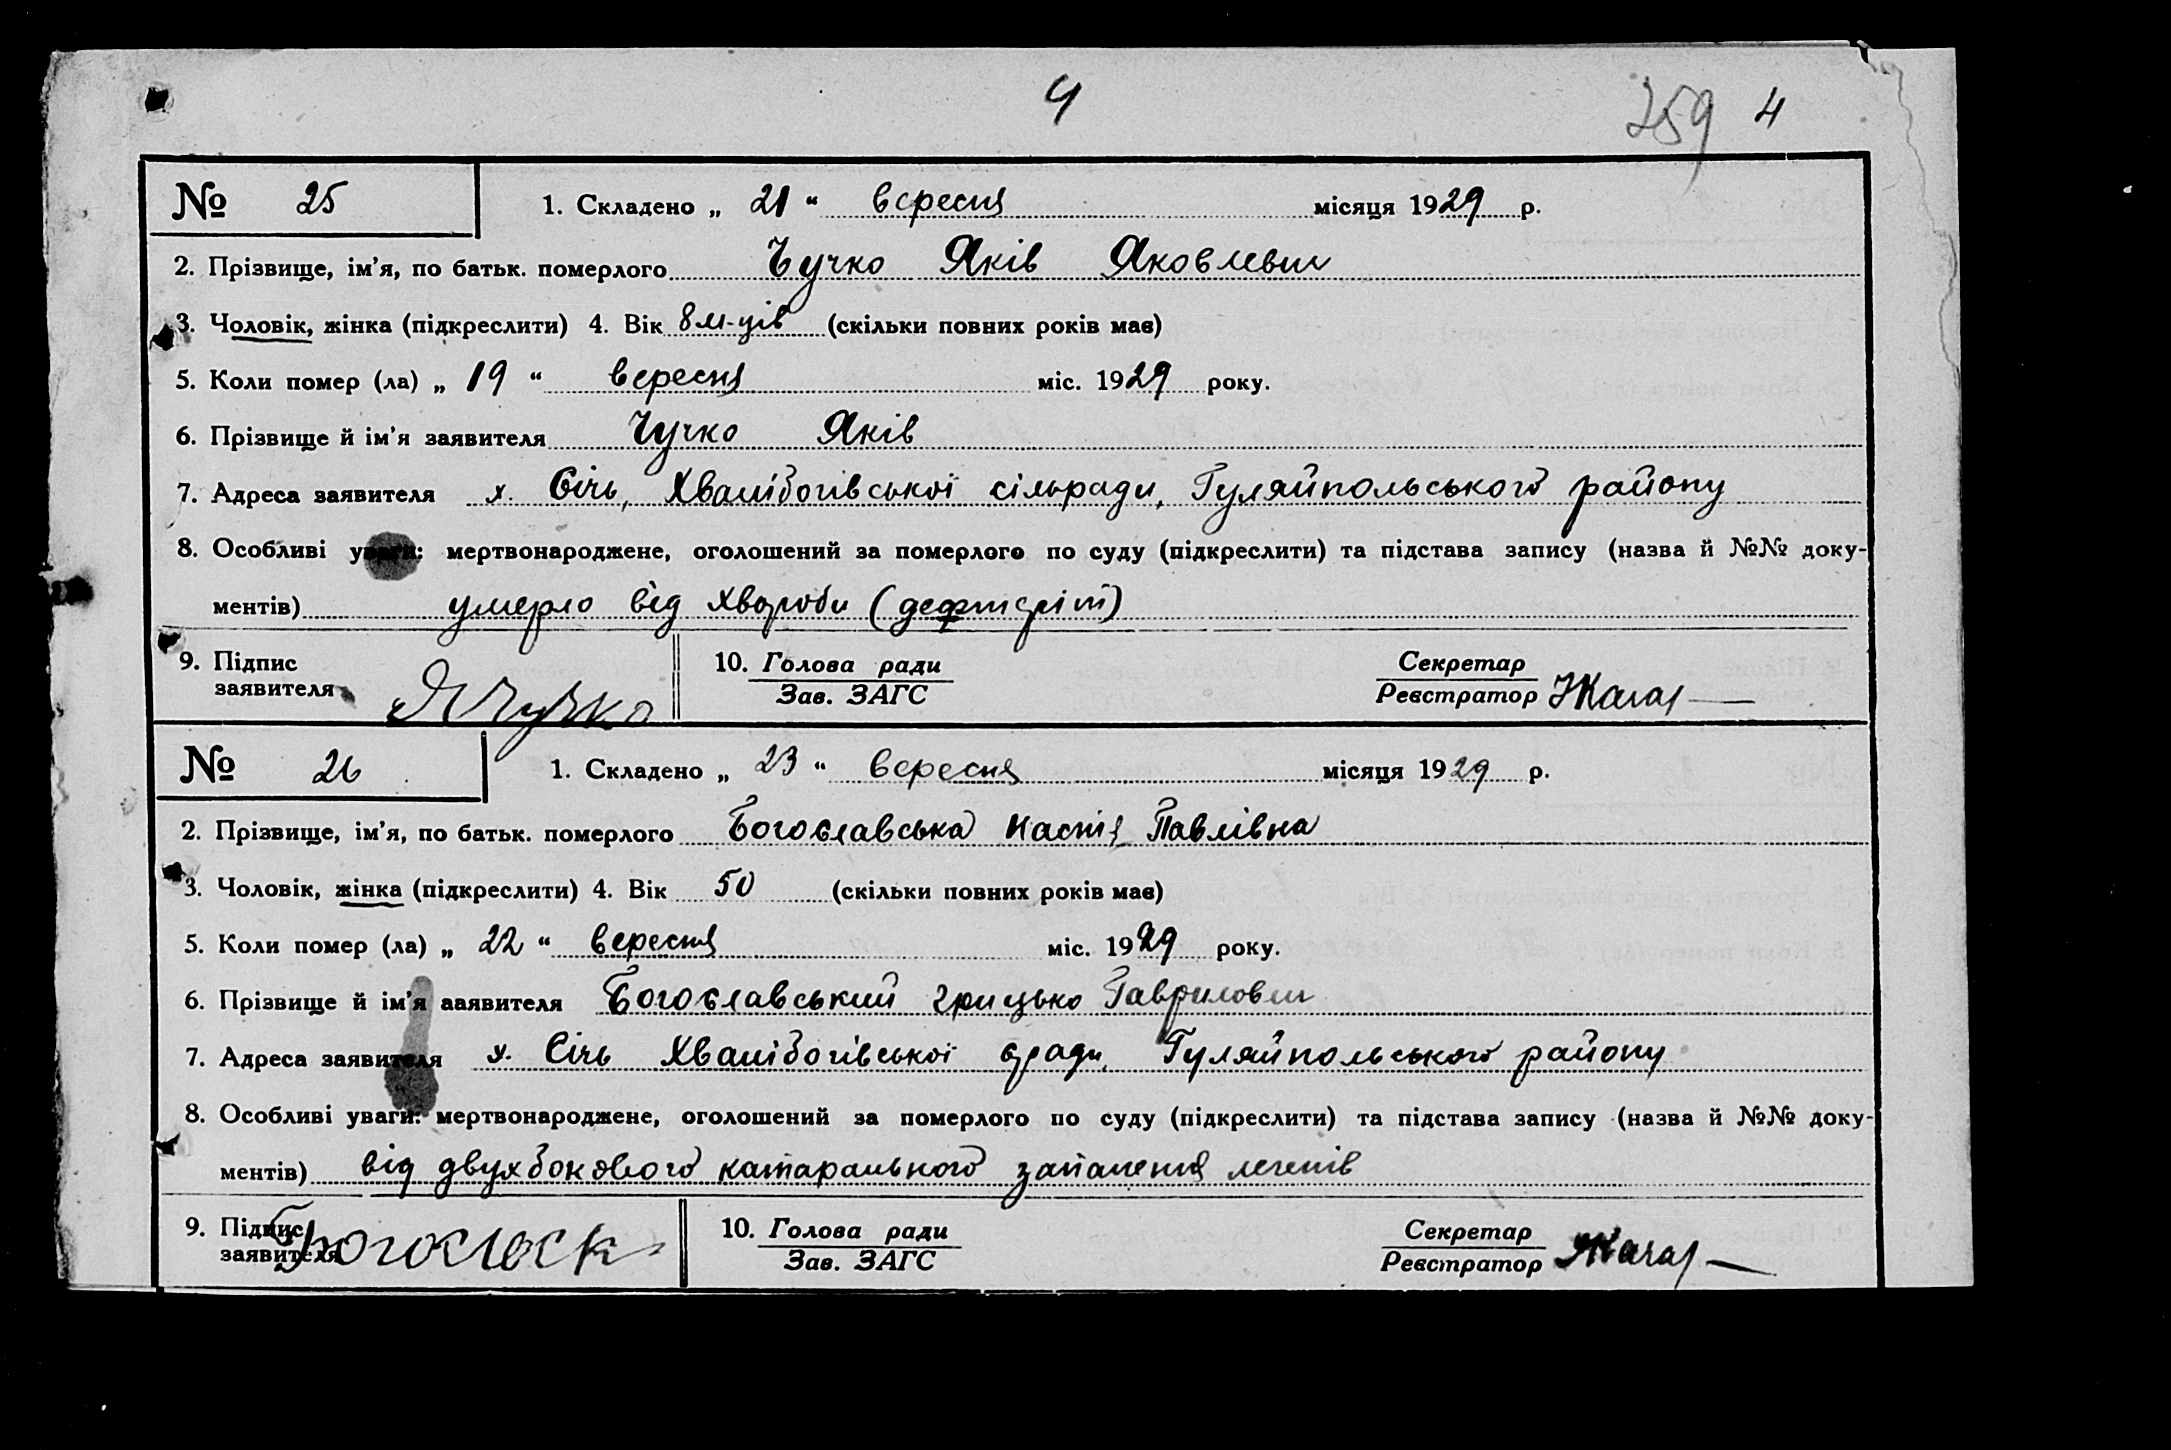 4
259 4
№ 25 1. Складено „ 21 “ вересня місяця 1929 р.
2. Прізвище, ім’я, по батьк. померлого Чучко Яків Яковлевич
3. Чоловік, жінка (підкреслити) 4. Вік 8 м-ців (скільки повних років має)
5. Коли помер (ла) „ 19 “ вересня міс. 1929 року.
6. Прізвище й ім’я заявителя Чучко Яків
7. Адреса заявителя х. Січь, Хвалібогівської сільради, Гуляйпольського району
8. Особливі уваги: мертвонароджене, оголошений за померлого по суду (підкреслити) та підстава запису (назва й №№ доку-
ментів) умерло від хвороби (дефтеріт)
9. Підпис 10. Голова ради Секретар
заявителя Я Чучко Зав. ЗАГС Реєстратор
№ 26 1. Складено „ 23 “ вересня місяця 1929 р.
2. Прізвище, ім’я, по батьк. померлого Богославська Настя Павлівна
3. Чоловік, жінка (підкреслити) 4. Вік 50 (скільки повних років має)
5. Коли помер (ла) „ 22 “ вересня міс. 1929 року.
6. Прізвище й ім’я заявителя Богославський Грицько Гаврилович
7. Адреса заявителя х. Січь Хвалібогівської с/ради, Гуляйпольського району
8. Особливі уваги: мертвонароджене, оголошений за померлого по суду (підкреслити) та підстава запису (назва й №№ доку-
ментів) від двухбокового катарального запаления легенів
9. Підпис 10. Голова ради Секретар
заявителя Зав. ЗАГС Реєстратор